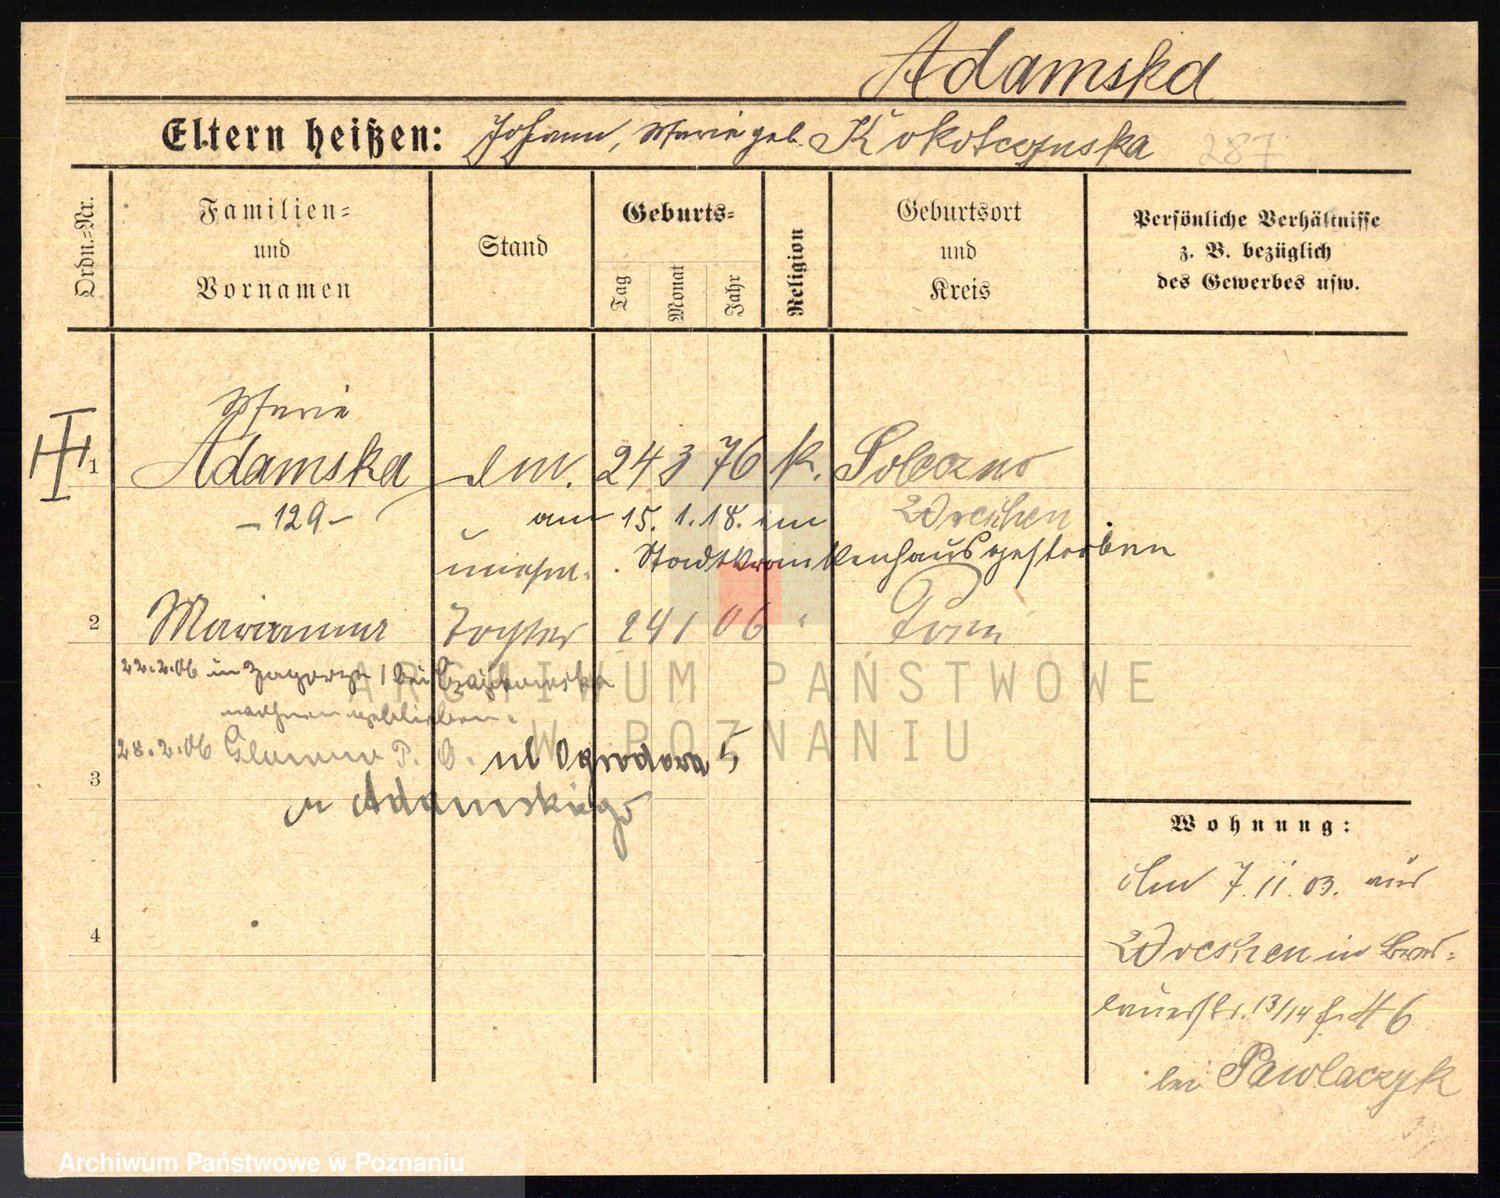 Adamska
Eltern heißen: Johann, Marie geb. Kokotczynska 287
Ordn.-Nr.
Familien-
und
Vornamen
Stand
Geburts-
Tag
Monat
Jahr
Religion
Geburtsort
und
Kreis
Persönliche Verhältnisse
z. B. bezüglich
des Gewerbes usw.
Marie
1 Adamska 24 3 76 k.
- 129 - am 15. 1. 18. im Wreschen
Stadtkrankenhaus gestorben
2 Marianna Tochter 24 1 06 " Posen
22.2.06 in Zagorze 1 bei
28.2.06 P. O. ul Ogrodowa 5
3
u Adamskiego
4
Wohnung:
Am 7. 11. 03. aus
Wreschen in Bres-
lauerstr. 13/14 f. H 6
bei Pawlaczyk
ARCHIWUM PAŃSTWOWE
W POZNANIU
Archiwum Państwowe w Poznaniu